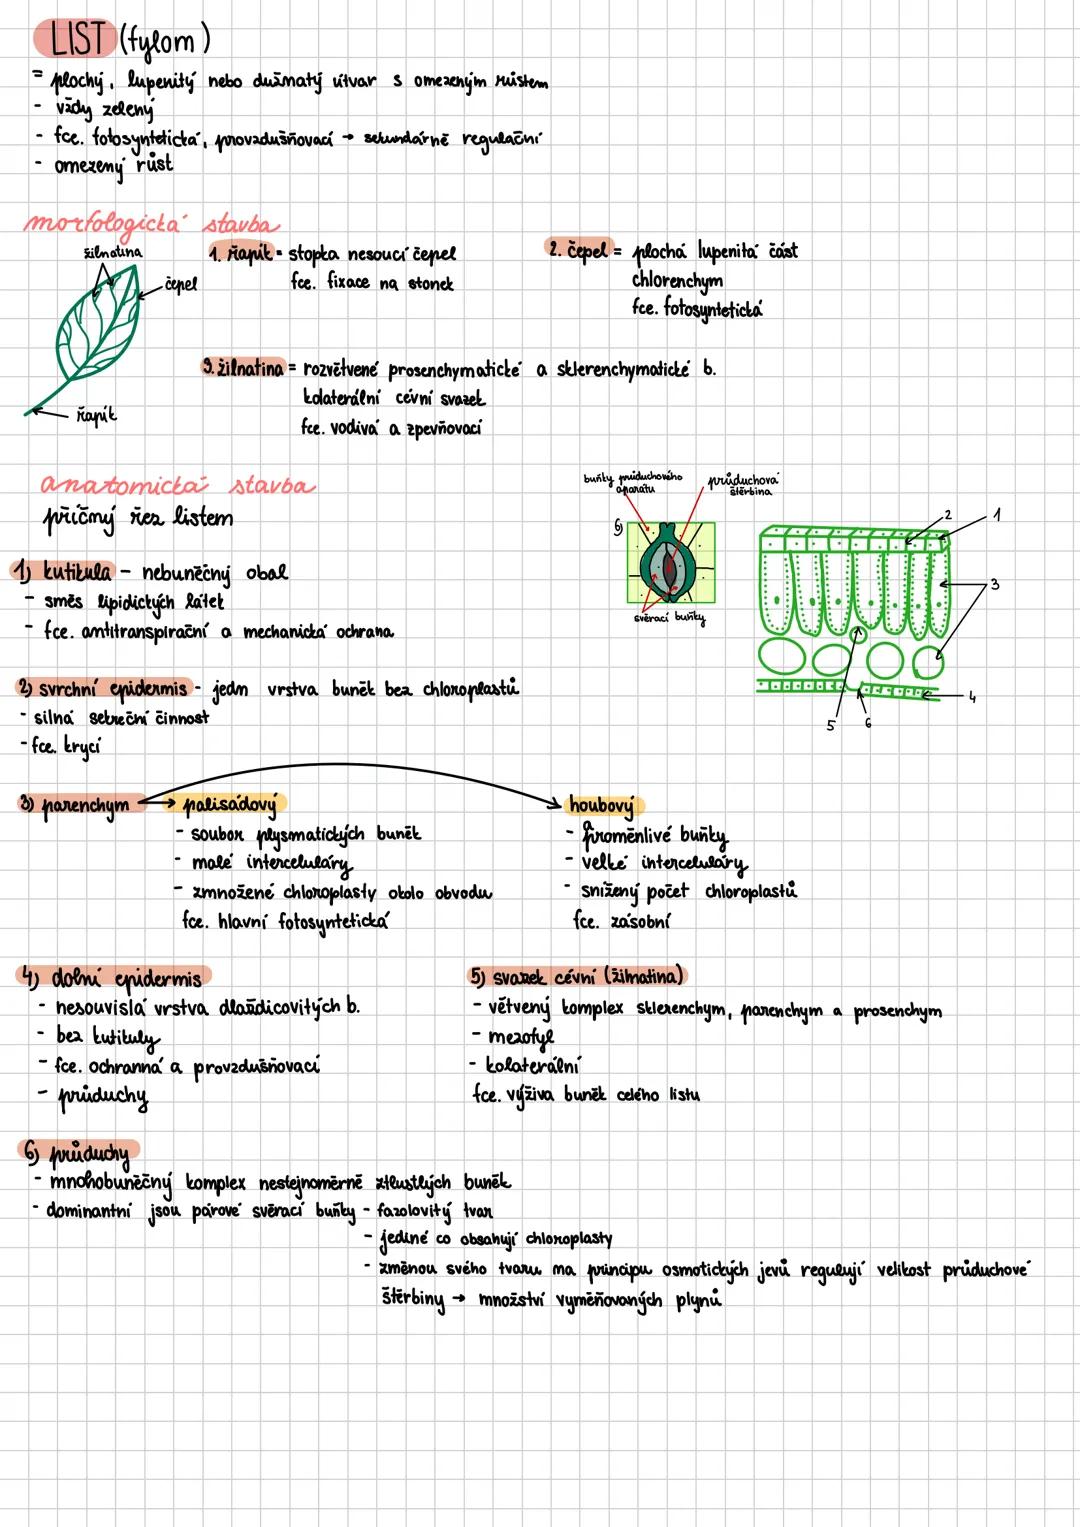 LIST (fylom)
= plochý, lupenitý nebo dužnatý útvar s omezeným růstem
- vždy zelený
- fce. fotosyntetická, provzdušňovací → sekundárně regulační
- omezený růst
morfologická stavba
žilnatina
čepel
řapík
1. řapík = stopka nesoucí čepel
fce. fixace na stonek
2. čepel = plochá lupenitá část
chlorenchym
fce. fotosyntetická
3. žilnatina = rozvětvené prosenchymatické a sklerenchymatické b.
kolaterální cévní svazek
fce. vodivá a zpevňovací
anatomická stavba
příčný řez listem
buňky průduchového aparátu
průduchová štěrbina
6)
svěrací buňky
2 1
3
4
5 6
1) kutikula - nebuněčný obal
- směs lipidických látek
- fce. antitranspirační a mechanická ochrana
2) svrchní epidermis - jedn vrstva buněk bez chloroplastů
- silná sekreční činnost
- fce. krycí
3) parenchym → palisádový
- soubor plysmatických buněk
- malé intercelulár​y
- zmnožené chloroplasty okolo obvodu
fce. hlavní fotosyntetická
houbový
- proměnlivé buňky
- velké interceluláry
- snížený počet chloroplastů
fce. zásobní
4) dolní epidermis
- nesouvislá vrstva dlaždicovitých b.
- bez kutikuly
- fce. ochranná a provzdušňovací
- průduchy
5) svazek cévní (žilnatina)
- větvený komplex sklerenchym, parenchym a prosenchym
- mezofyl
- kolaterální
fce. výživa buněk celého listu
6) průduchy
- mnohobuněčný komplex nestejnoměrně ztlustlých buněk
- dominantní jsou párové svěrací buňky - fazolovitý tvar
- jediné co obsahují chloroplasty
- změnou svého tvaru ma principu osmotických jevů regulují velikost průduchové
štěrbiny → množství vyměňovaných plynů